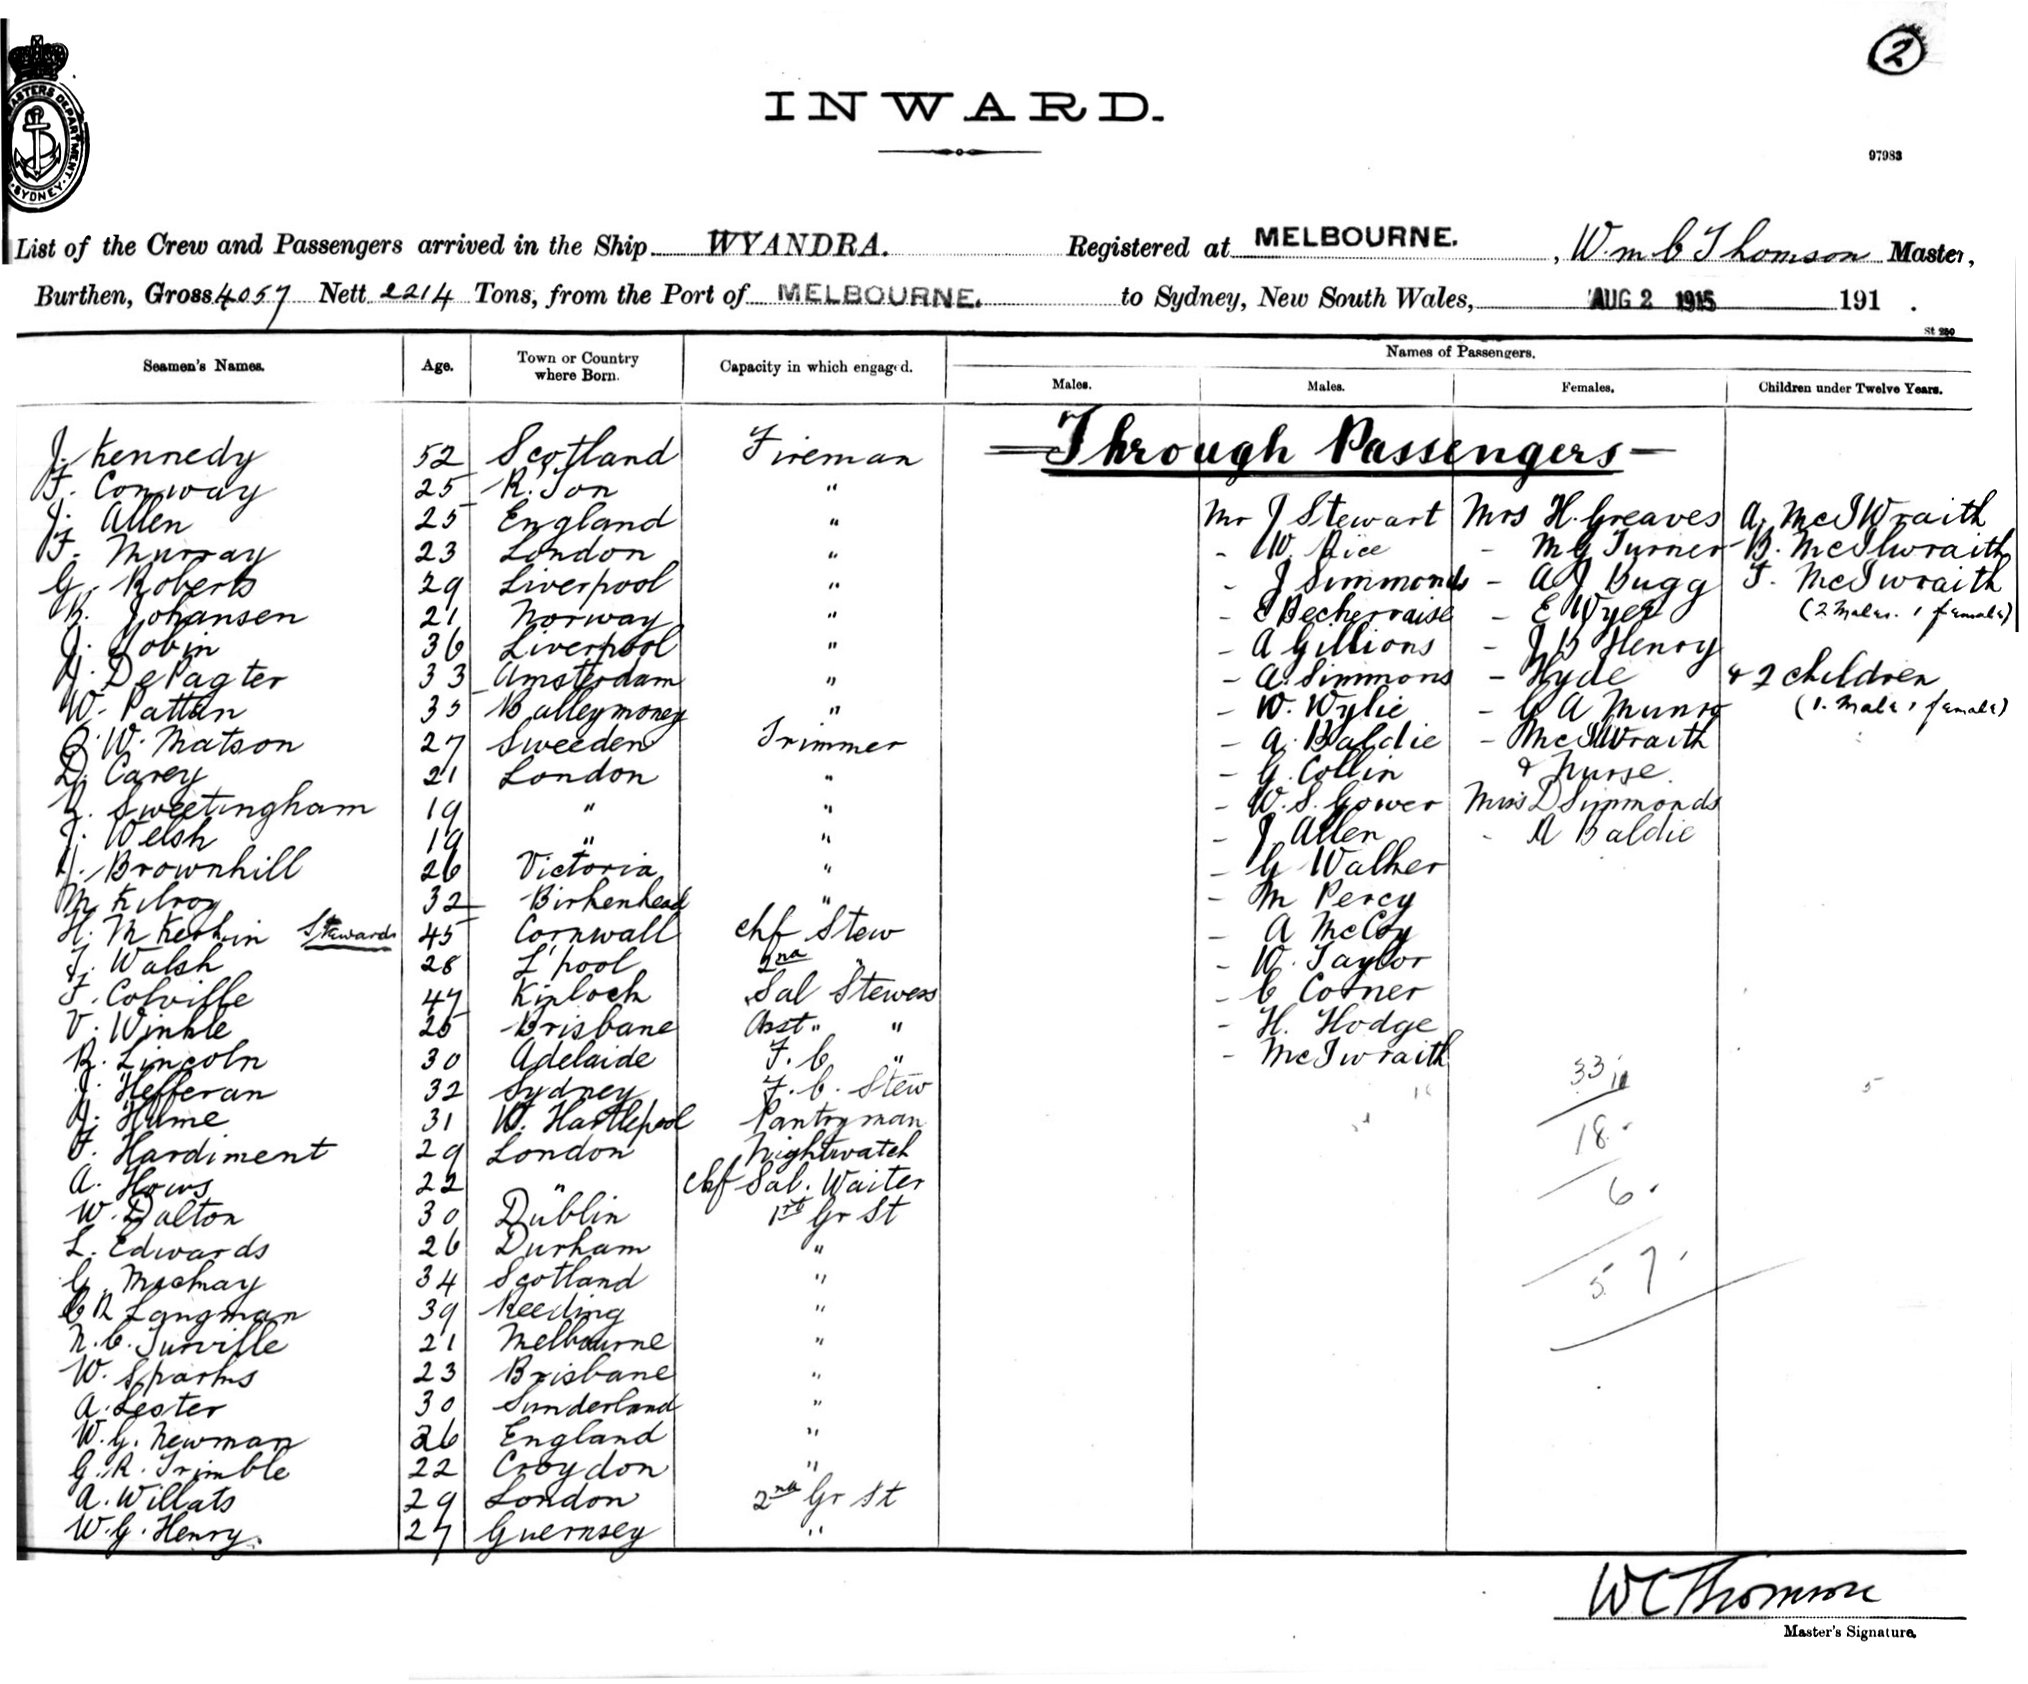 2
INWARD.
MASTERS DEPARTMENT. SYDNEY.
97983
List of the Crew and Passengers arrived in the Ship WYANDRA. Registered at MELBOURNE. , Wm C Thomson Master,
Burthen, Gross 4057 Nett 2214 Tons, from the Port of MELBOURNE. to Sydney, New South Wales, AUG 2 1915 191 .
St 250
Seamen's Names. Age. Town or Country where Born. Capacity in which engaged. Names of Passengers.
Males. Males. Females. Children under Twelve Years.
Through Passengers
J. Kennedy 52 Scotland Fireman
F. Conway 25 "
J. Allen 25 England " Mr J Stewart Mrs H. Greaves A. McIWraith
F. Murray 23 London " - W. Rice - M G Turner B. McIlwraith
G. Roberts 29 Liverpool " - J Simmonds - A J Bugg F. McIwraith
K. Johansen 21 Norway " - E Becherraise - E Wyer (2 males. 1 female)
J. Tobin 36 Liverpool " - A Gillions - J B Henry
J. DePagter 33 Amsterdam " - A. Simmons - Hyde & 2 children
W. Patten 35 Balleymoney " - W. Wylie - C A Munro (1. male 1 female)
W. Matson 27 Sweeden Trimmer - A. Baldie - McIlWraith
D. Carey 21 London " - G. Collin & Nurse.
Sweetingham 19 " " - W. S. Gower Miss D Simmonds
J. Welsh 19 " " - J. Allen - A Baldie
J. Brownhill 26 Victoria " - G Walker
M. Kilroy 32 Birkenhead " - M Percy
H. M Kerkin Stewards 45 Cornwall chf Stew - A McCoy
J. Walsh 28 L'pool 2nd " - W. Taylor
F. Colville 47 Kinloch Sal Stewess - C Corner
V. Winkle 25 Brisbane Asst " " - H. Hodge
R. Lincoln 30 Adelaide F. C. " - McIwraith
J. Hefferan 32 Sydney F. C. Stew 33
J. Hume 31 W. Hartlepool Pantryman
F. Hardiment 29 London Nightwatch 18.
A. Hows 22 " chf Sal. Waiter 6.
W. Dalton 30 Dublin 1st Gr St
L. Edwards 26 Durham "
G. Mackay 34 Scotland " 57.
C R Langman 39 Reeding "
N. C. Turville 21 Melbourne "
W. Sparks 23 Brisbane "
A. Lester 30 Sunderland "
W. G. Newman 26 England "
G. R. Trimble 22 Croydon "
A. Willats 29 London 2nd Gr St
W. G. Henry. 27 Guernsey "
W C Thomson
Master's Signature.